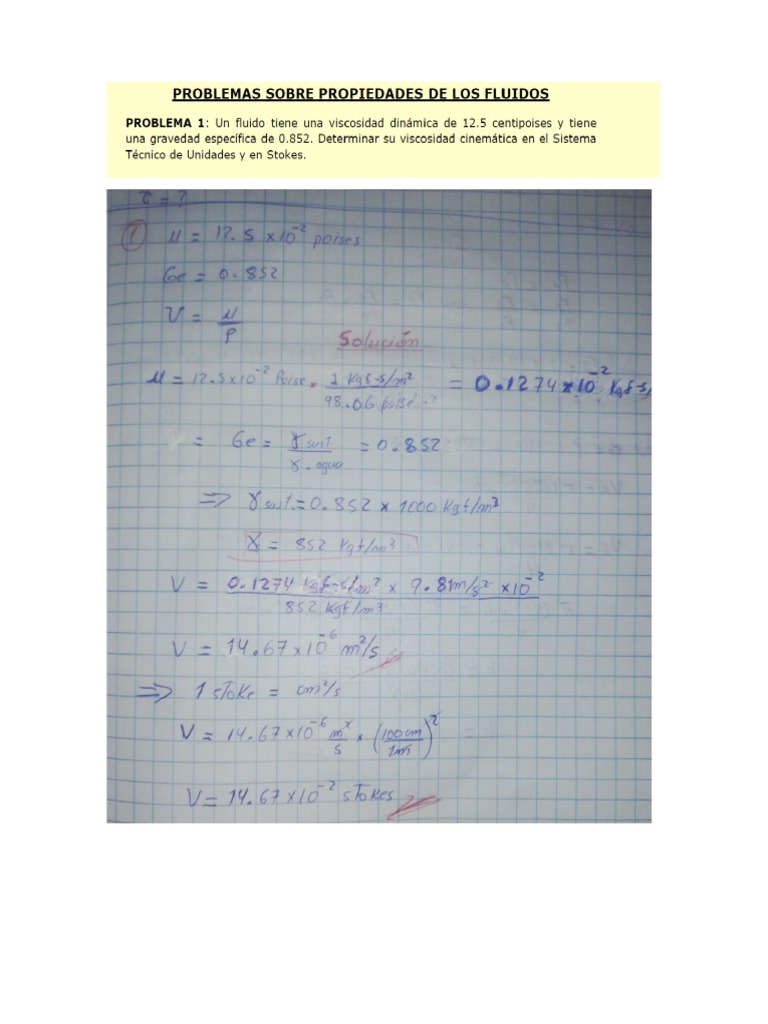 PROBLEMAS SOBRE PROPIEDADES DE LOS FLUIDOS
PROBLEMA 1: Un fluido tiene una viscosidad dinámica de 12.5 centipoises y tiene
una gravedad específica de 0.852. Determinar su viscosidad cinemática en el Sistema
Técnico de Unidades y en Stokes.
τ = ?
① μ = 12.5 x10⁻² poises
Ge = 0.852
V = μ/ρ
Solución
μ = 12.5x10⁻² Poise * 1 Kgf-s/m² / 98.06 poise = 0.1274 x 10⁻² Kgf-s/
= Ge = γ sust / γ.agua = 0.852
⇒ γ sust. = 0.852 x 1000 Kgf/m³
γ = 852 Kgf/m³
V = 0.1274 Kgf-s/m² x 9.81m/s² x10⁻² / 852 Kgf/m³
V = 14.67x10⁻⁶ m²/s
⇒ 1 stoke = cm²/s
V = 14.67x10⁻⁶ m²/s * (100cm/1m)²
V = 14.67x10⁻² stokes